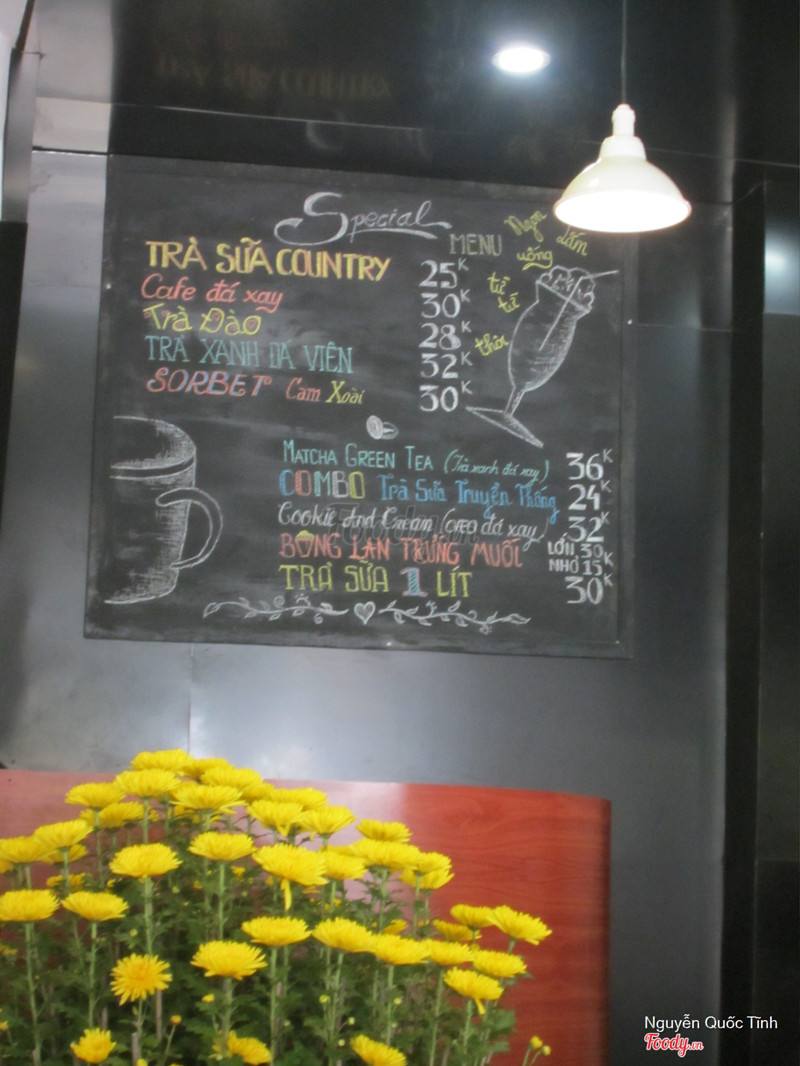 Special
MENU
Ngon lắm
uống
từ từ
thôi
TRÀ SỮA COUNTRY 25K
Cafe đá xay 30K
Trà Đào 28K
TRÀ XANH ĐÁ VIÊN 32K
SORBET Cam Xoài 30K
MATCHA GREEN TEA (Trà xanh đá xay) 36K
COMBO Trà Sữa Truyền Thống 24K
Cookie And Cream (OREO đá xay) 32K
BÔNG LAN TRỨNG MUỐI LỚN 30K
NHỎ 15K
TRÀ SỮA 1 LÍT 30K
Nguyễn Quốc Tĩnh
Foody.vn